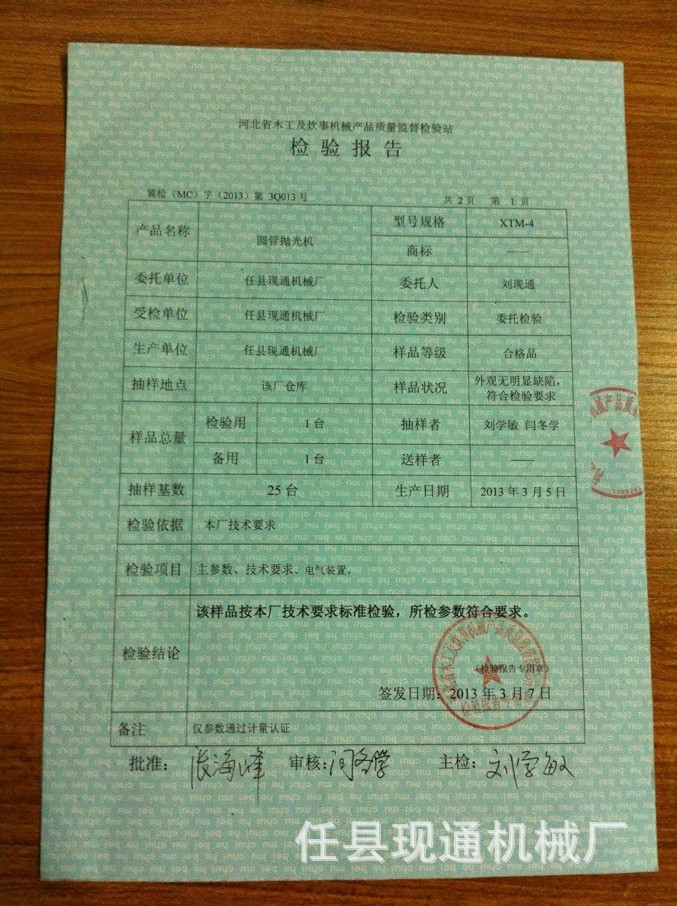 河北省木工及炊事机械产品质量监督检验站
检验报告
冀检（MC）字（2013）第 3Q013 号
共 2 页 第 1 页
产品名称 圆管抛光机 型号规格 XTM-4
商标 ——
委托单位 任县现通机械厂 委托人 刘现通
受检单位 任县现通机械厂 检验类别 委托检验
生产单位 任县现通机械厂 样品等级 合格品
抽样地点 该厂仓库 样品状况 外观无明显缺陷，
符合检验要求
样品总量 检验用 1 台 抽样者 刘学敏 闫冬学
备用 1 台 送样者 ——
抽样基数 25 台 生产日期 2013 年 3 月 5 日
检验依据 本厂技术要求
检验项目 主参数、技术要求、电气装置。
该样品按本厂技术要求标准检验，所检参数符合要求。
检验结论
（检验报告专用章）
签发日期：2013 年 3 月 7 日
备注 仅参数通过计量认证
批准：张海峰 审核：闫冬学 主检：刘学敏
任县现通机械厂